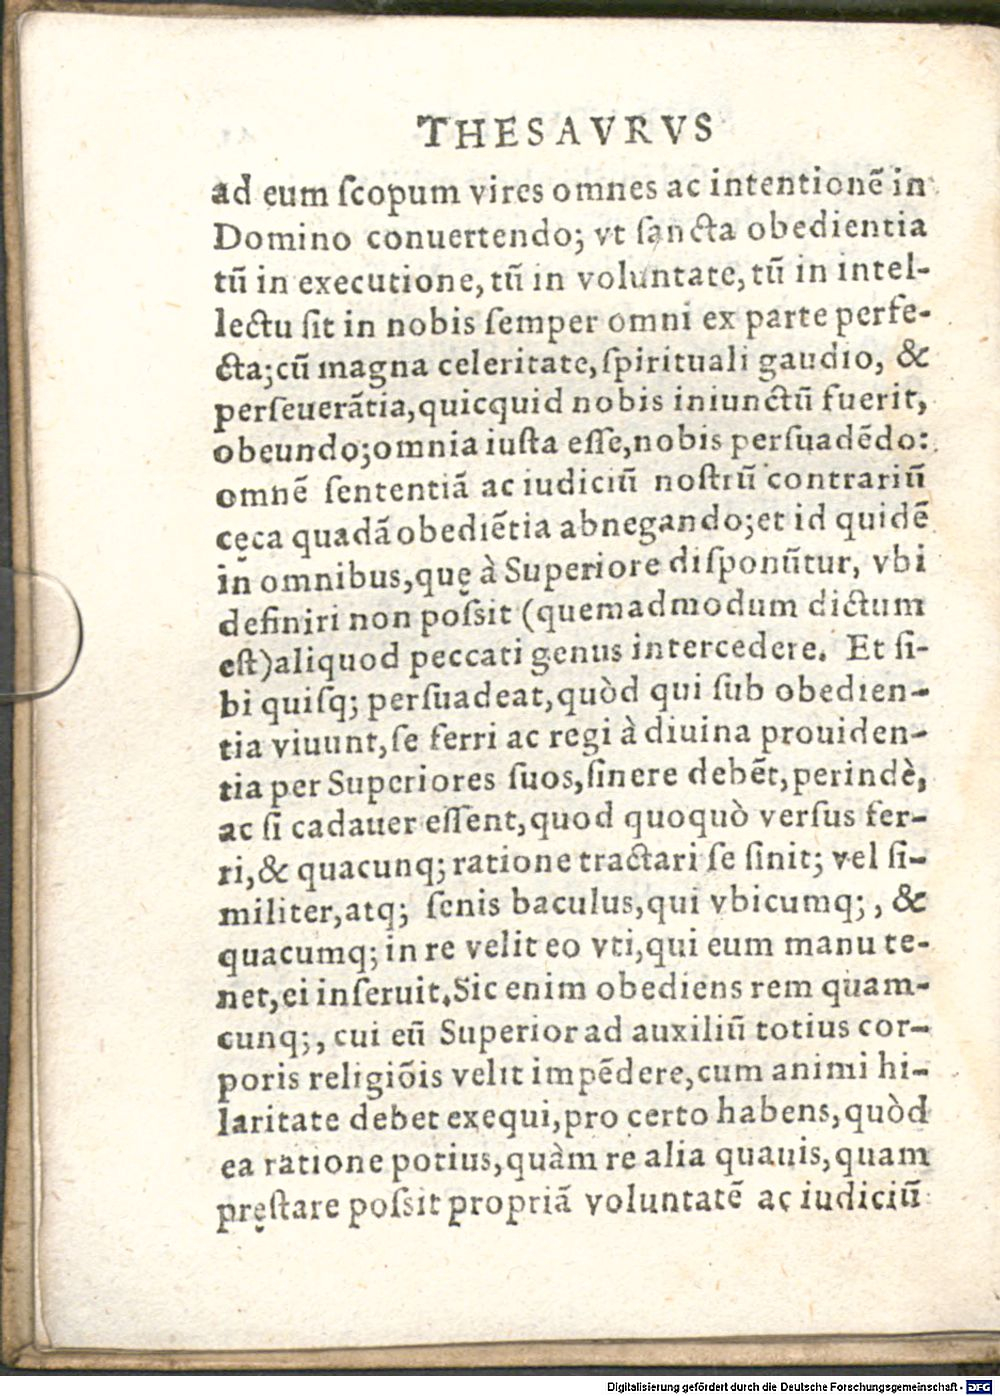 THESAVRVS
ad eum ſcopum vires omnes ac intentionē in
Domino conuertendo; vt ſancta obedientia
tū in executione, tū in voluntate, tū in intel-
lectu ſit in nobis ſemper omni ex parte perfe-
cta; cū magna celeritate, ſpirituali gaudio, &
perſeuerātia, quicquid nobis iniunctū fuerit,
obeundo; omnia iuſta eſſe, nobis perſuadēdo:
omnē ſententiā ac iudiciū noſtrū contrariū
cęca quadā obediētia abnegando; et id quidē
in omnibus, quę à Superiore diſponūtur, vbi
definiri non poſsit (quemadmodum dictum
eſt) aliquod peccati genus intercedere. Et ſi-
bi quiſq; perſuadeat, quòd qui ſub obedien-
tia viuunt, ſe ferri ac regi à diuina prouiden-
tia per Superiores ſuos, ſinere debēt, perindè,
ac ſi cadauer eſſent, quod quoquò verſus fer-
ri, & quacunq; ratione tractari ſe ſinit; vel ſi-
militer, atq; ſenis baculus, qui vbicumq;, &
quacumq; in re velit eo vti, qui eum manu te-
net, ei inſeruit. Sic enim obediens rem quam-
cunq;, cui eū Superior ad auxiliū totius cor-
poris religiōis velit impēdere, cum animi hi-
laritate debet exequi, pro certo habens, quòd
ea ratione potius, quàm re alia quauis, quam
pręſtare poſsit propriā voluntatē ac iudiciū
Digitalisierung gefördert durch die Deutsche Forschungsgemeinschaft - DFG